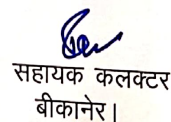 सहायक कलक्टर
बीकानेर।